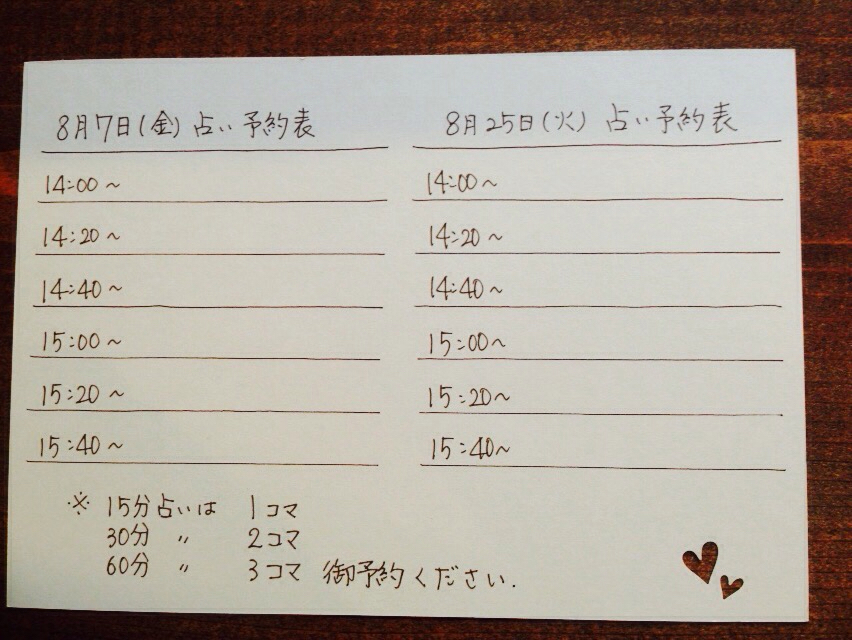 8月7日(金) 占い予約表
14:00〜
14:20〜
14:40〜
15:00〜
15:20〜
15:40〜
8月25日(火) 占い予約表
14:00〜
14:20〜
14:40〜
15:00〜
15:20〜
15:40〜
※ 15分占いは 1コマ
30分 〃 2コマ
60分 〃 3コマ 御予約ください.